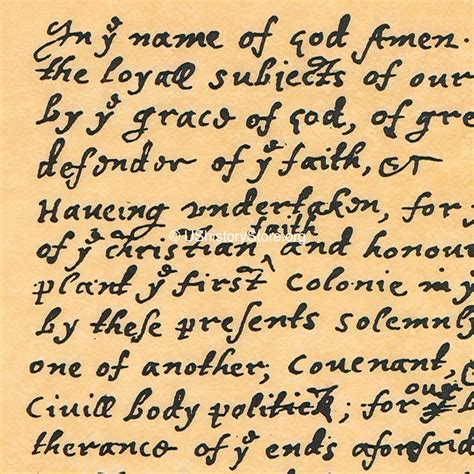 In yᵉ name of god Amen.
the loyall subjects of our
by yᵉ grace of god, of gre
defender of yᵉ faith, &c
Haveing undertaken, for
faith
of yᵉ christian ^ and honou
© UShistoryStore.org
plant yᵉ first colonie in y
by these presents solemnly
one of another; covenant,
our
Civill body politick; for
therance of yᵉ ends aforesaid